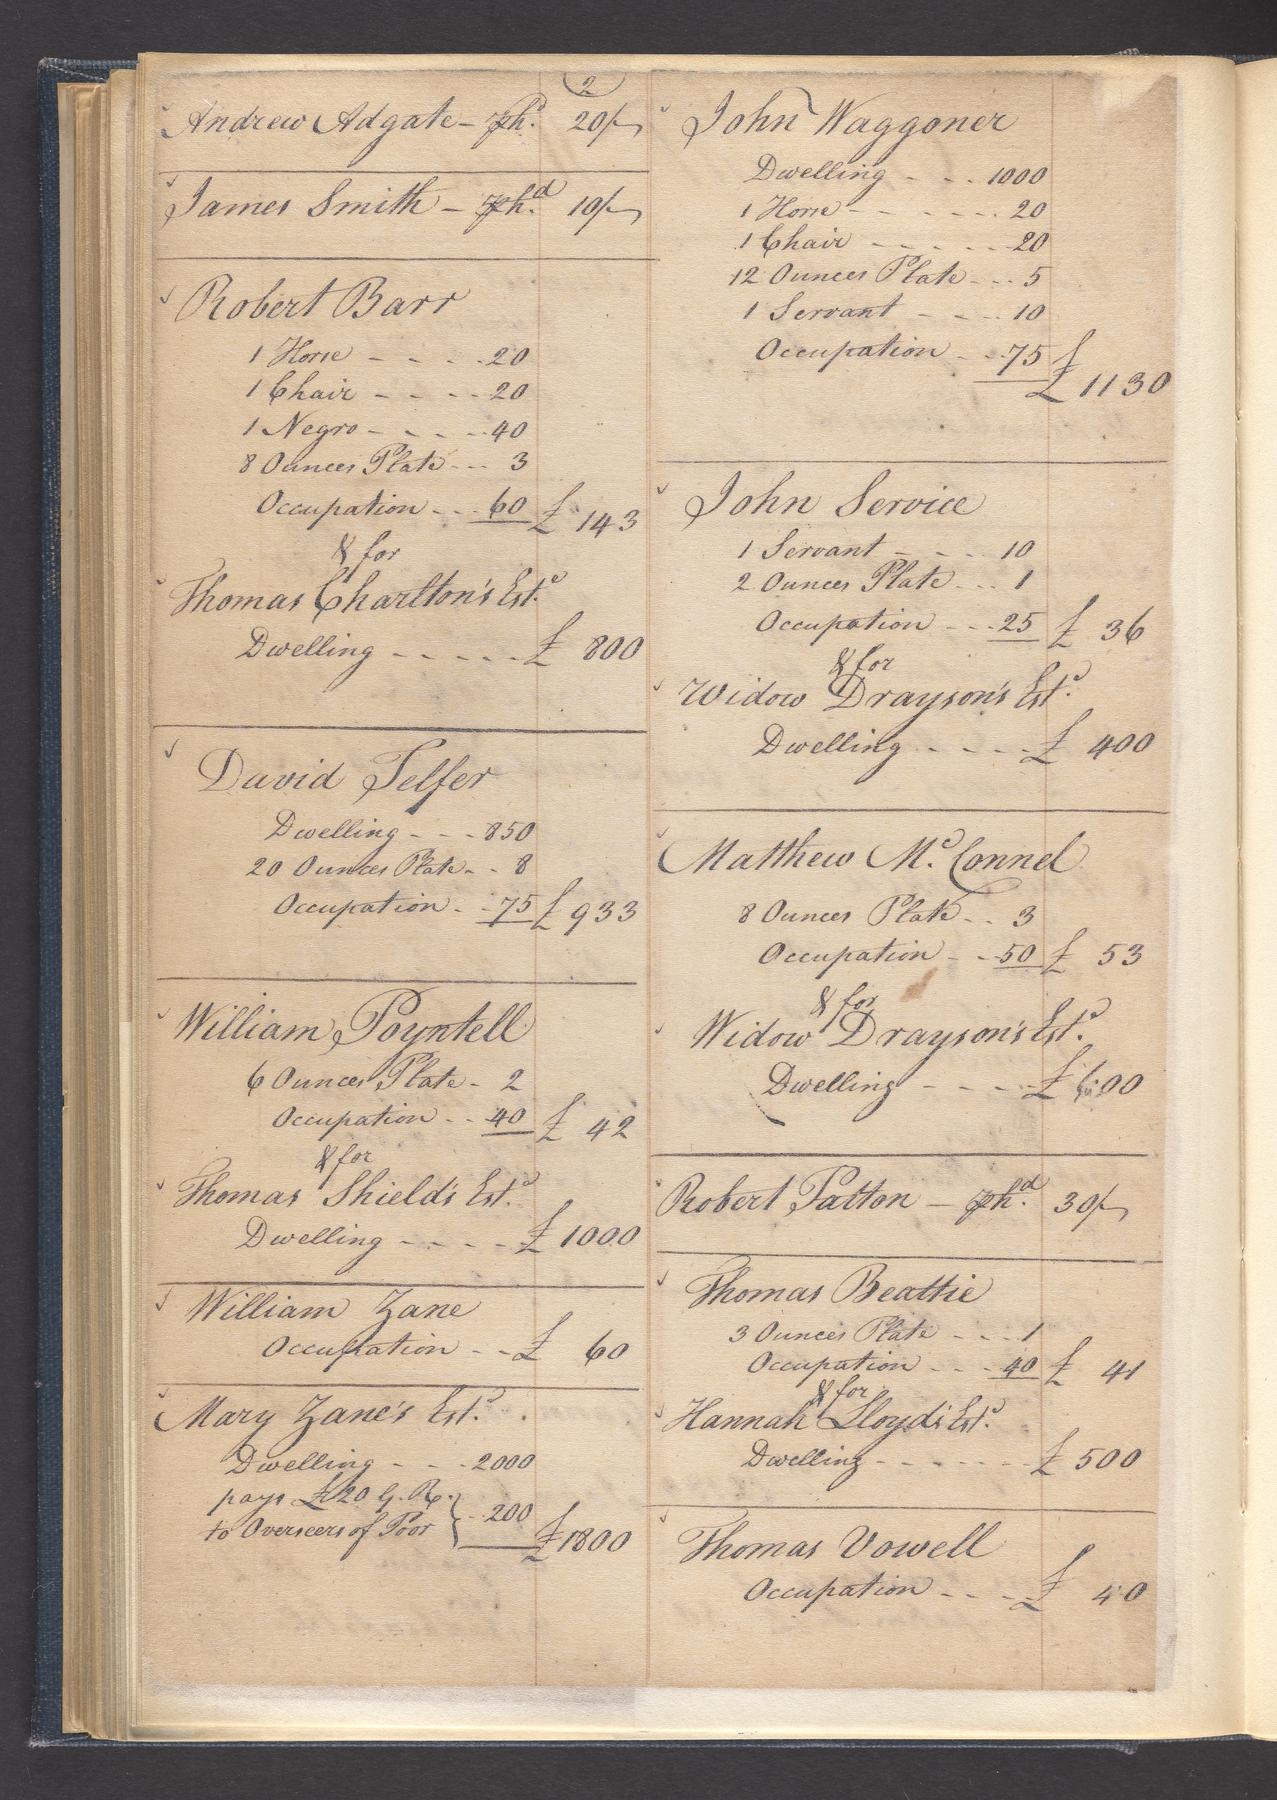 2
Andrew Adgate - ph.d 20/
James Smith - ph.d 10/
Robert Barr
1 Horse - - - - 20
1 Chair - - - - 20
1 Negro - - - - 40
8 Ounces Plate - - - 3
Occupation - - - 60 £ 143
& for
Thomas Charlton's Est.e
Dwelling - - - - - £ 800
David Telfer
Dwelling - - - 850
20 Ounces Plate - - 8
Occupation - - 75 £ 933
William Poyntell
6 Ounces Plate - 2
Occupation - - 40 £ 42
& for
Thomas Shield's Est.e
Dwelling - - - - £ 1000
William Zane
Occupation - - £ 60
Mary Zane's Est.e
Dwelling - - - 2000
pays £20 G. R.
to Overseers of Poor } - 200 £ 1800
John Waggoner
Dwelling - - - 1000
1 Horse - - - - - - 20
1 Chair - - - - - - 20
12 Ounces Plate - - - 5
1 Servant - - - - 10
Occupation - - - 75 £
£ 1130
John Service
1 Servant - - - 10
2 Ounces Plate - - - 1
Occupation - - - 25 £ 36
& for
Widow Drayson's Est.e
Dwelling - - - - - £ 400
Matthew Mc. Connel
8 Ounces Plate - - 3
Occupation - - - 50 £ 53
& for
Widow Drayson's Est.e
Dwelling - - - - - £ 600
Robert Patton - ph.d 30/
Thomas Beattie
3 Ounces Plate - - - 1
Occupation - - - 40 £ 41
& for
Hannah Lloyd's Est.e
Dwelling - - - - - - - £ 500
Thomas Vowell
Occupation - - - - £ 40